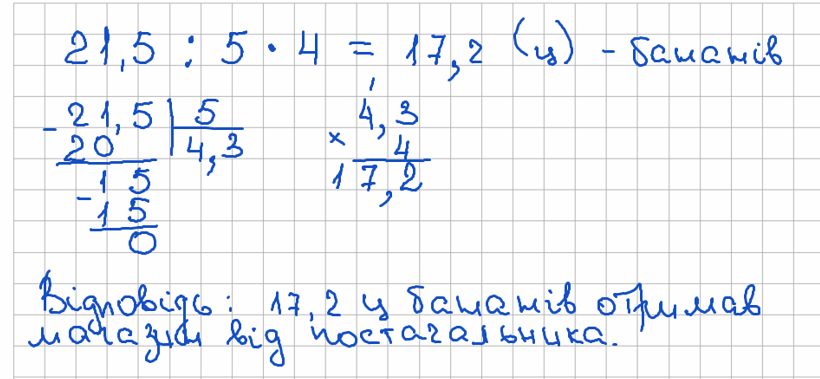 21,5 : 5 · 4 = 17,2 (ц) - бананів
-21,5 | 5
20 | 4,3
-15
15
0
4,3
× 4
17,2
Відповідь: 17,2 ц бананів отримав
магазин від постачальника.